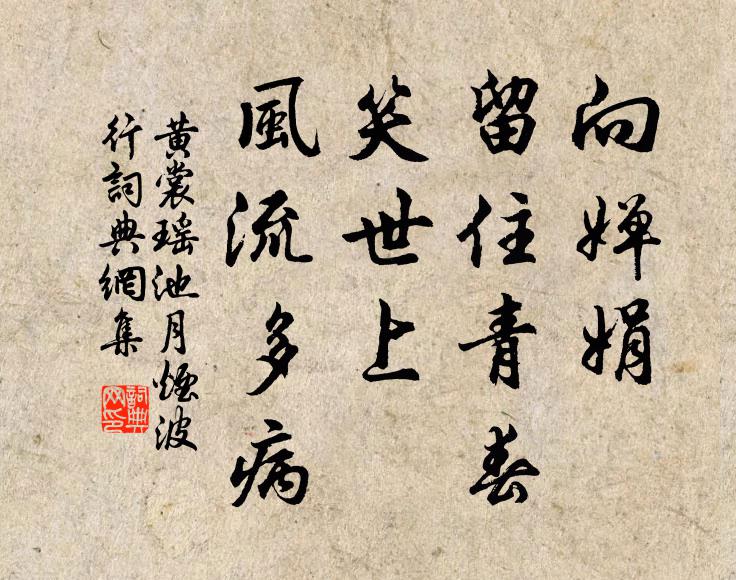 向嬋娟
留住青春
笑世上
風流多病
黄裳瑤池月煙波
行詞典網集
詞典网印